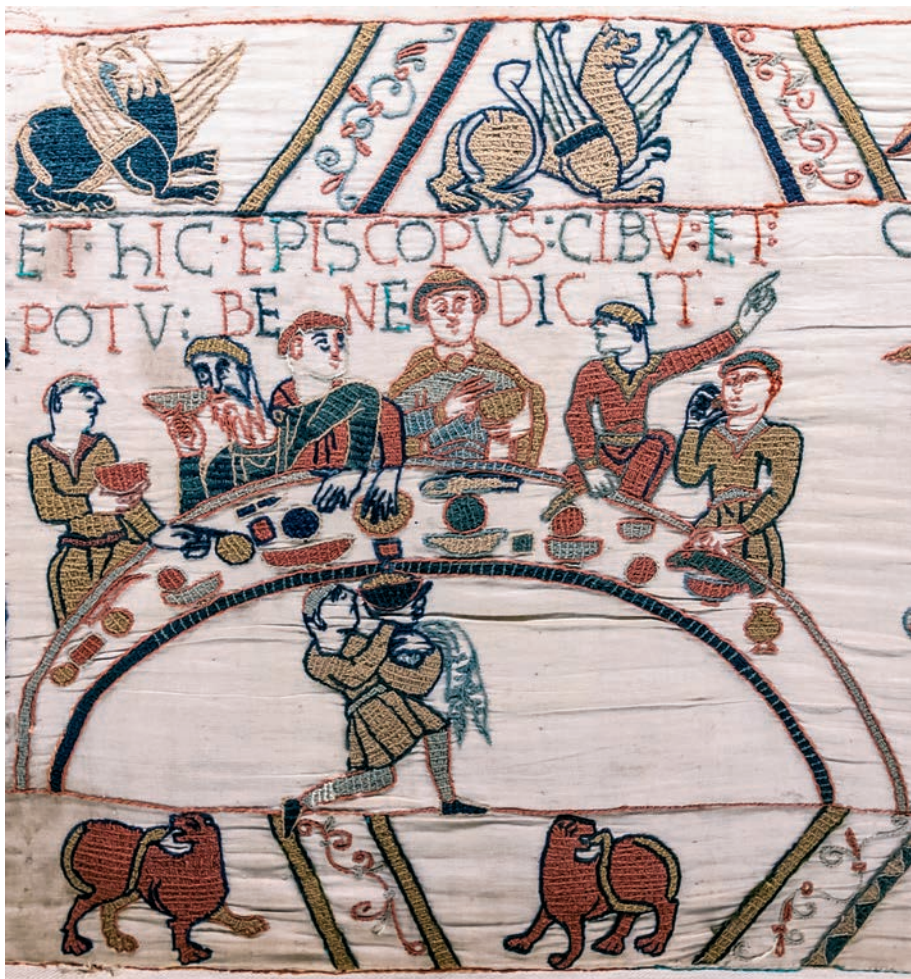 ET · hIC · EPISCOPVS : CIBV : ET :
POTV : BENEDICIT ·